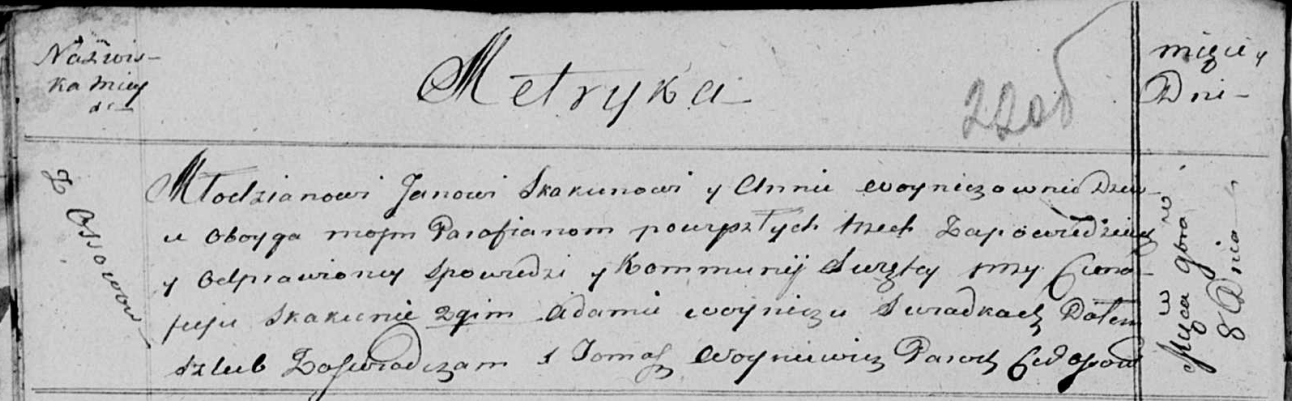 Nazwis-
ka miey
Metryka
220б
miący
Dni-
z Ossowa
Młodzianowi Janowi Skakunowi y Annie Woyniczownie Dzew-
u Oboyga moim Parafianom powyszłych trzech Zapowiedziey
y Odprawioney Spowiedzi y Kommunij Swiętey
Skakunie 2gim Adamie Woyniczu Swiadkach Dałem
szlub Zaswiadczam X Tomasz Woyniewicz Paroch
Mjca 9bra
8 Dnia